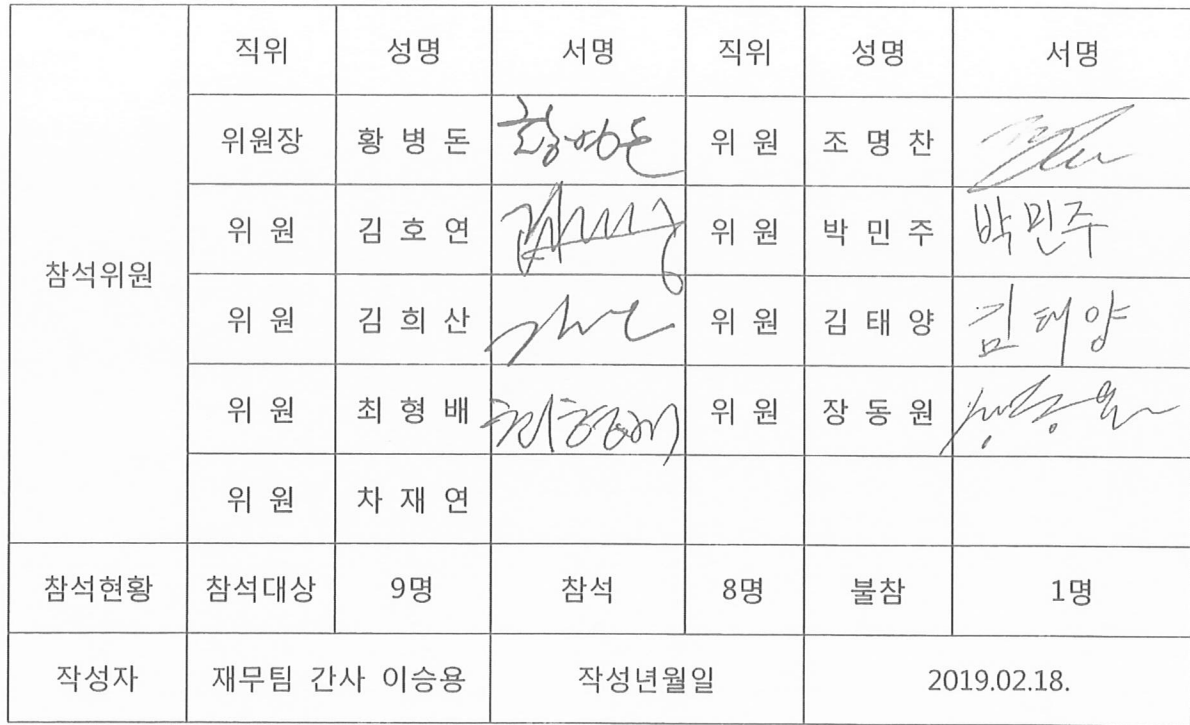 직위 성명 서명 직위 성명 서명
위원장 황 병 돈 황병돈 위 원 조 명 찬
위 원 김 호 연 위 원 박 민 주 박민주
참석위원
위 원 김 희 산 위 원 김 태 양 김태양
위 원 최 형 배 최형배 위 원 장 동 원
위 원 차 재 연
참석현황 참석대상 9명 참석 8명 불참 1명
작성자 재무팀 간사 이승용 작성년월일 2019.02.18.